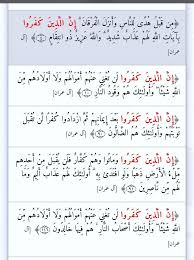 ﴿مِن قَبْلُ هُدًى لِّلنَّاسِ وَأَنزَلَ الْفُرْقَانَ ۗ إِنَّ الَّذِينَ كَفَرُوا
بِآيَاتِ اللَّهِ لَهُمْ عَذَابٌ شَدِيدٌ ۗ وَاللَّهُ عَزِيزٌ ذُو انتِقَامٍ﴾ [آل
عمران]
﴿إِنَّ الَّذِينَ كَفَرُوا لَن تُغْنِيَ عَنْهُمْ أَمْوَالُهُمْ وَلَا أَوْلَادُهُم مِّنَ
اللَّهِ شَيْئًا ۖ وَأُولَٰئِكَ هُمْ وَقُودُ النَّارِ﴾ [آل عمران]
﴿إِنَّ الَّذِينَ كَفَرُوا بَعْدَ إِيمَانِهِمْ ثُمَّ ازْدَادُوا كُفْرًا لَّن تُقْبَلَ
تَوْبَتُهُمْ وَأُولَٰئِكَ هُمُ الضَّالُّونَ﴾ [آل عمران]
﴿إِنَّ الَّذِينَ كَفَرُوا وَمَاتُوا وَهُمْ كُفَّارٌ فَلَن يُقْبَلَ مِنْ أَحَدِهِم
مِّلْءُ الْأَرْضِ ذَهَبًا وَلَوِ افْتَدَىٰ بِهِ ۗ أُولَٰئِكَ لَهُمْ عَذَابٌ أَلِيمٌ وَمَا
لَهُم مِّن نَّاصِرِينَ﴾ [آل عمران]
﴿إِنَّ الَّذِينَ كَفَرُوا لَن تُغْنِيَ عَنْهُمْ أَمْوَالُهُمْ وَلَا أَوْلَادُهُم مِّنَ
اللَّهِ شَيْئًا ۖ وَأُولَٰئِكَ أَصْحَابُ النَّارِ ۚ هُمْ فِيهَا خَالِدُونَ﴾ [آل